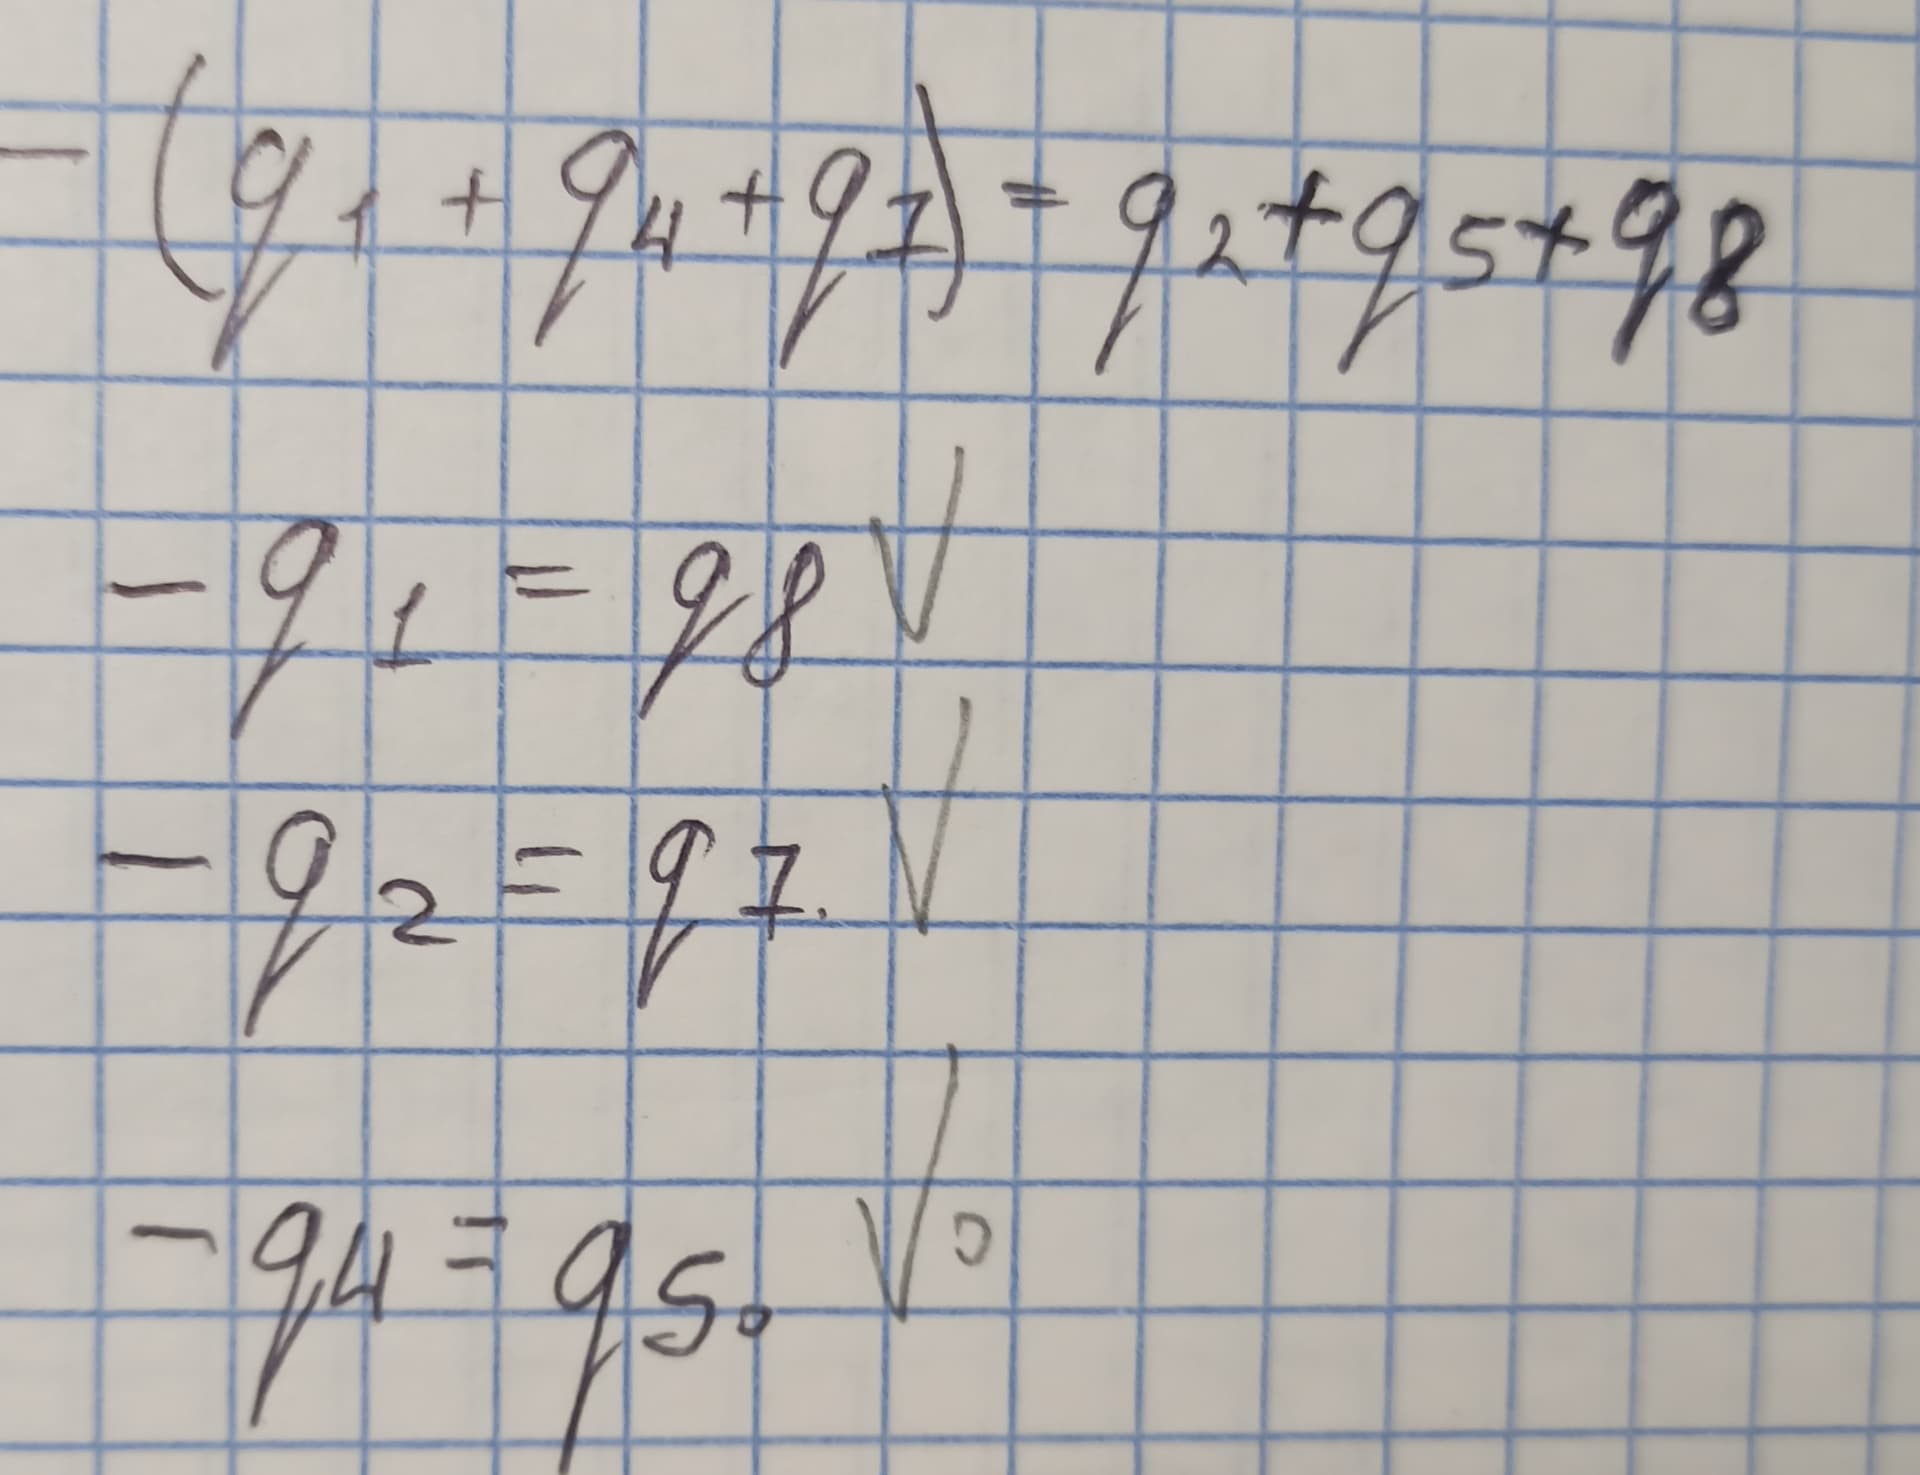 -(q₁ + q₄ + q₇) = q₂ + q₅ + q₈
- q₁ = q₈ √
- q₂ = q₇. √
- q₄ = q₅. √o